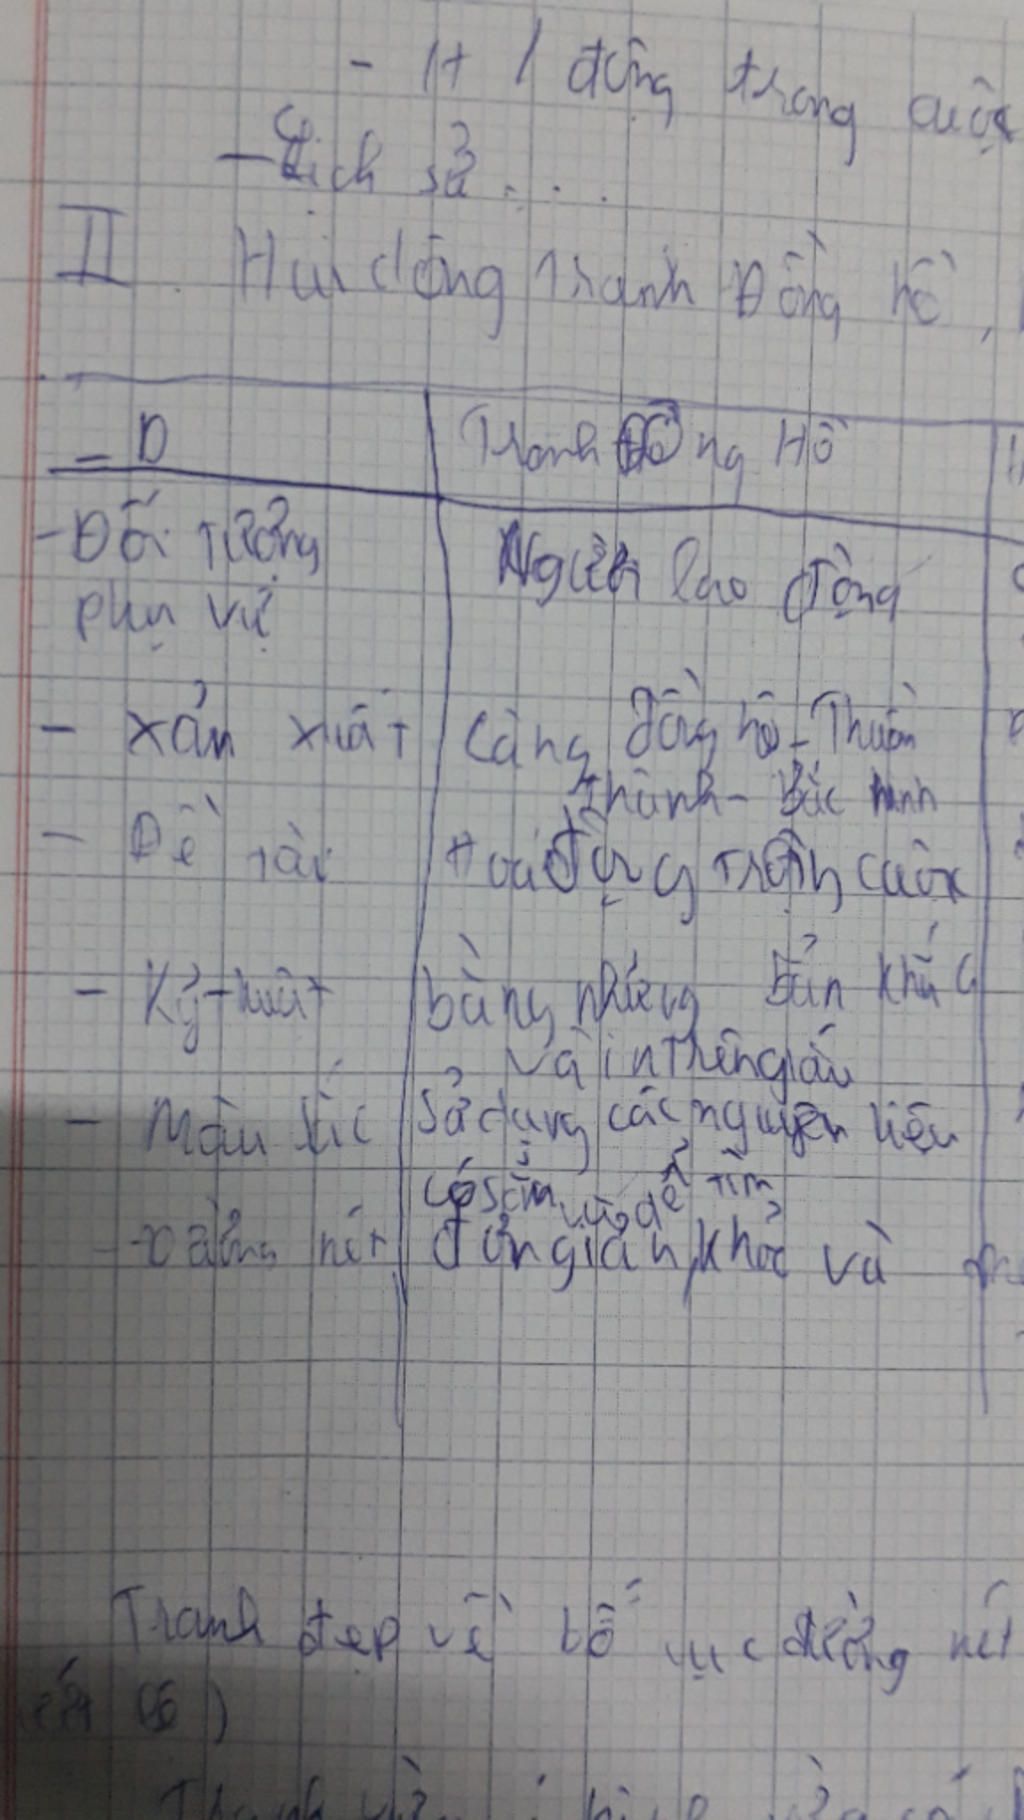 - H + / động trong cuộc
- Lịch sử . . .
II Hai dòng tranh Đồng hồ,
- D Tranh Đồng Hồ
- Đối tượng Người lao động
phụ vụ
- xản xuất Làng đồng hồ - Thuần
thành - Bắc ninh
- Đề tài Hoạt động trong cuộc
- Kỷ thuật bằng những bản khắc
và in trên giấy
- Màu sắc Sử dụng các nguyên liệu
có sẵn và dể tìm
- đường nét đơn giản, khỏe và
Tranh đẹp về bố cục đường nét